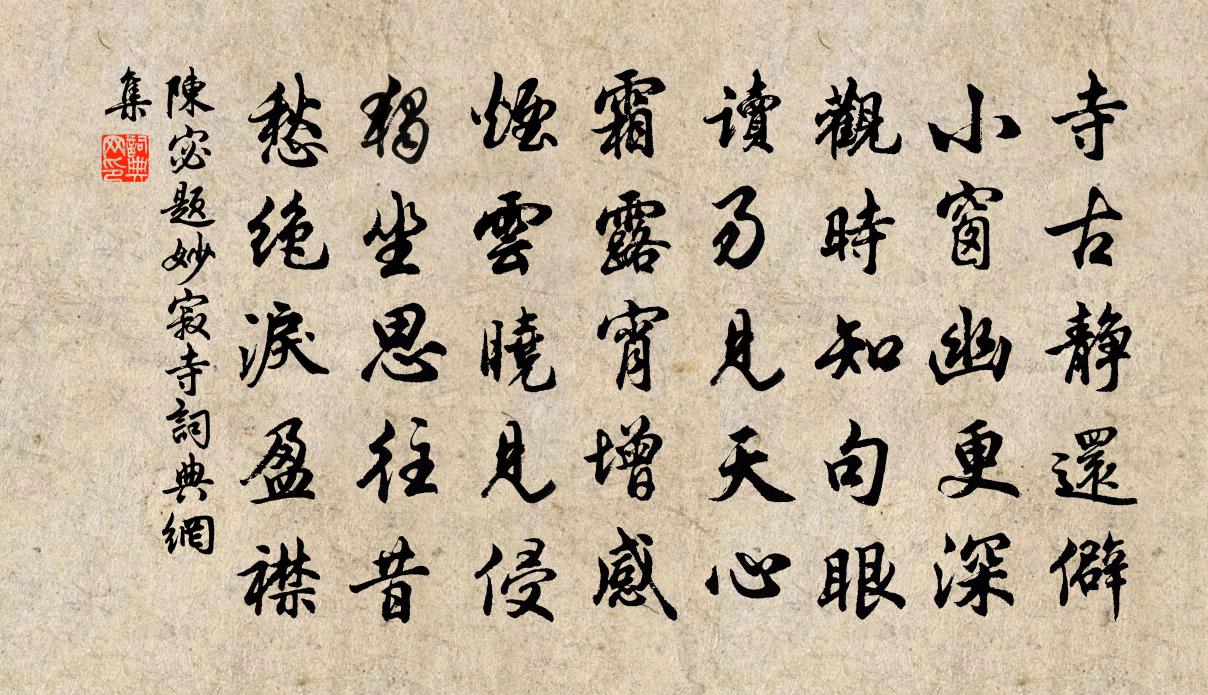 寺古靜還僻
小窗幽更深
觀時知句眼
讀易見天心
霜露宵增感
煙雲曉見侵
獨坐思往昔
愁絕淚盈襟
陳宓題妙寂寺詞典網
集
詞典網印